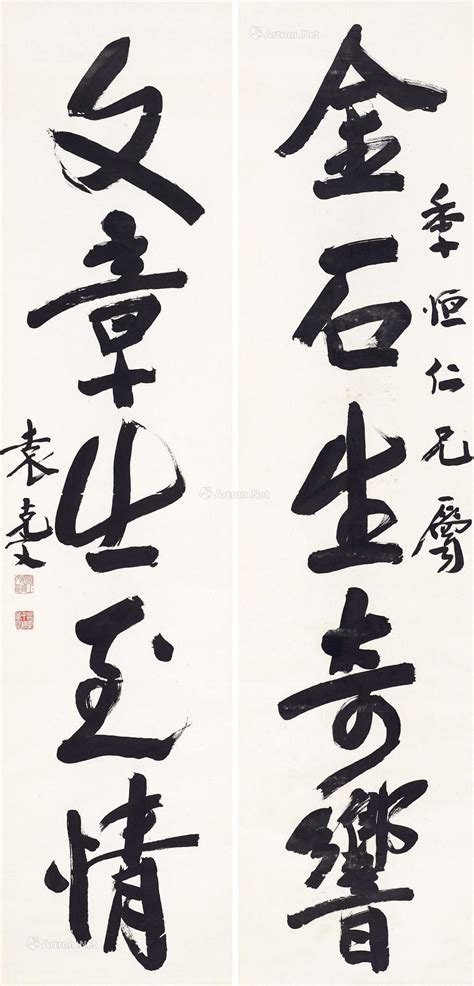 季恒仁兄属
金石生奇響
文章出至情
袁克文
Artron.Net
Artron.Net
Artron.Net
Artron.Net